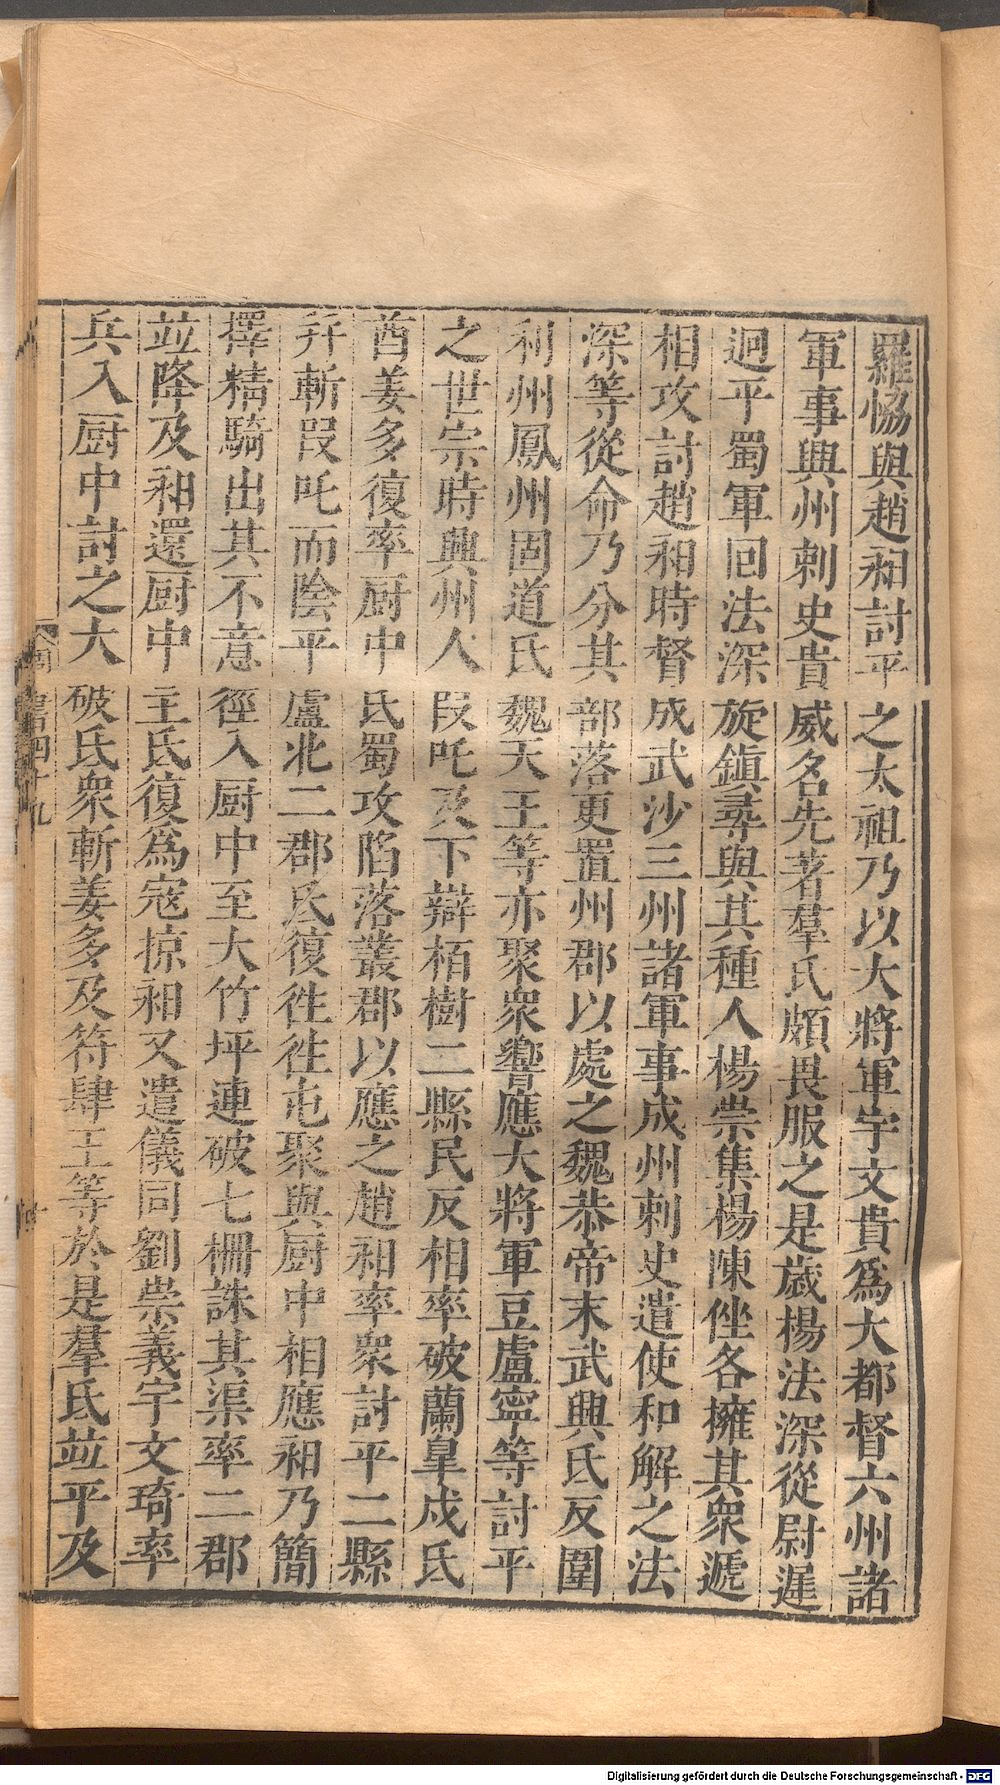 羅恊與趙昶討平之太祖乃以大將軍宇文貴爲大都督六州諸
軍事興州刺史貴威名先著羣氐頗畏服之是歲楊法深從尉遲
迥平蜀軍回法深旋鎮尋與其種人楊崇集楊陳侳各擁其衆遞
相攻討趙昶時督成武沙三州諸軍事成州刺史遣使和解之法
深等從命乃分其部落更置州郡以處之魏恭帝末武興氐反圍
利州鳳州固道氐魏天王等亦聚衆響應大將軍豆盧寧等討平
之世宗時興州人段吒及下辯栢樹二縣民反相率破蘭臯戍氐
酋姜多復率厨中氐蜀攻陷落叢郡以應之趙昶率衆討平二縣
幷斬段吒而陰平盧北二郡氐復徃徃屯聚與厨中相應昶乃簡
擇精騎出其不意徑入厨中至大竹坪連破七柵誅其渠率二郡
並降及昶還厨中主氐復爲寇掠昶又遣儀同劉崇義宇文琦率
兵入厨中討之大破氐衆斬姜多及符肆王等於是羣氐並平及
周書四十九
十
Digitalisierung gefördert durch die Deutsche Forschungsgemeinschaft - DFG